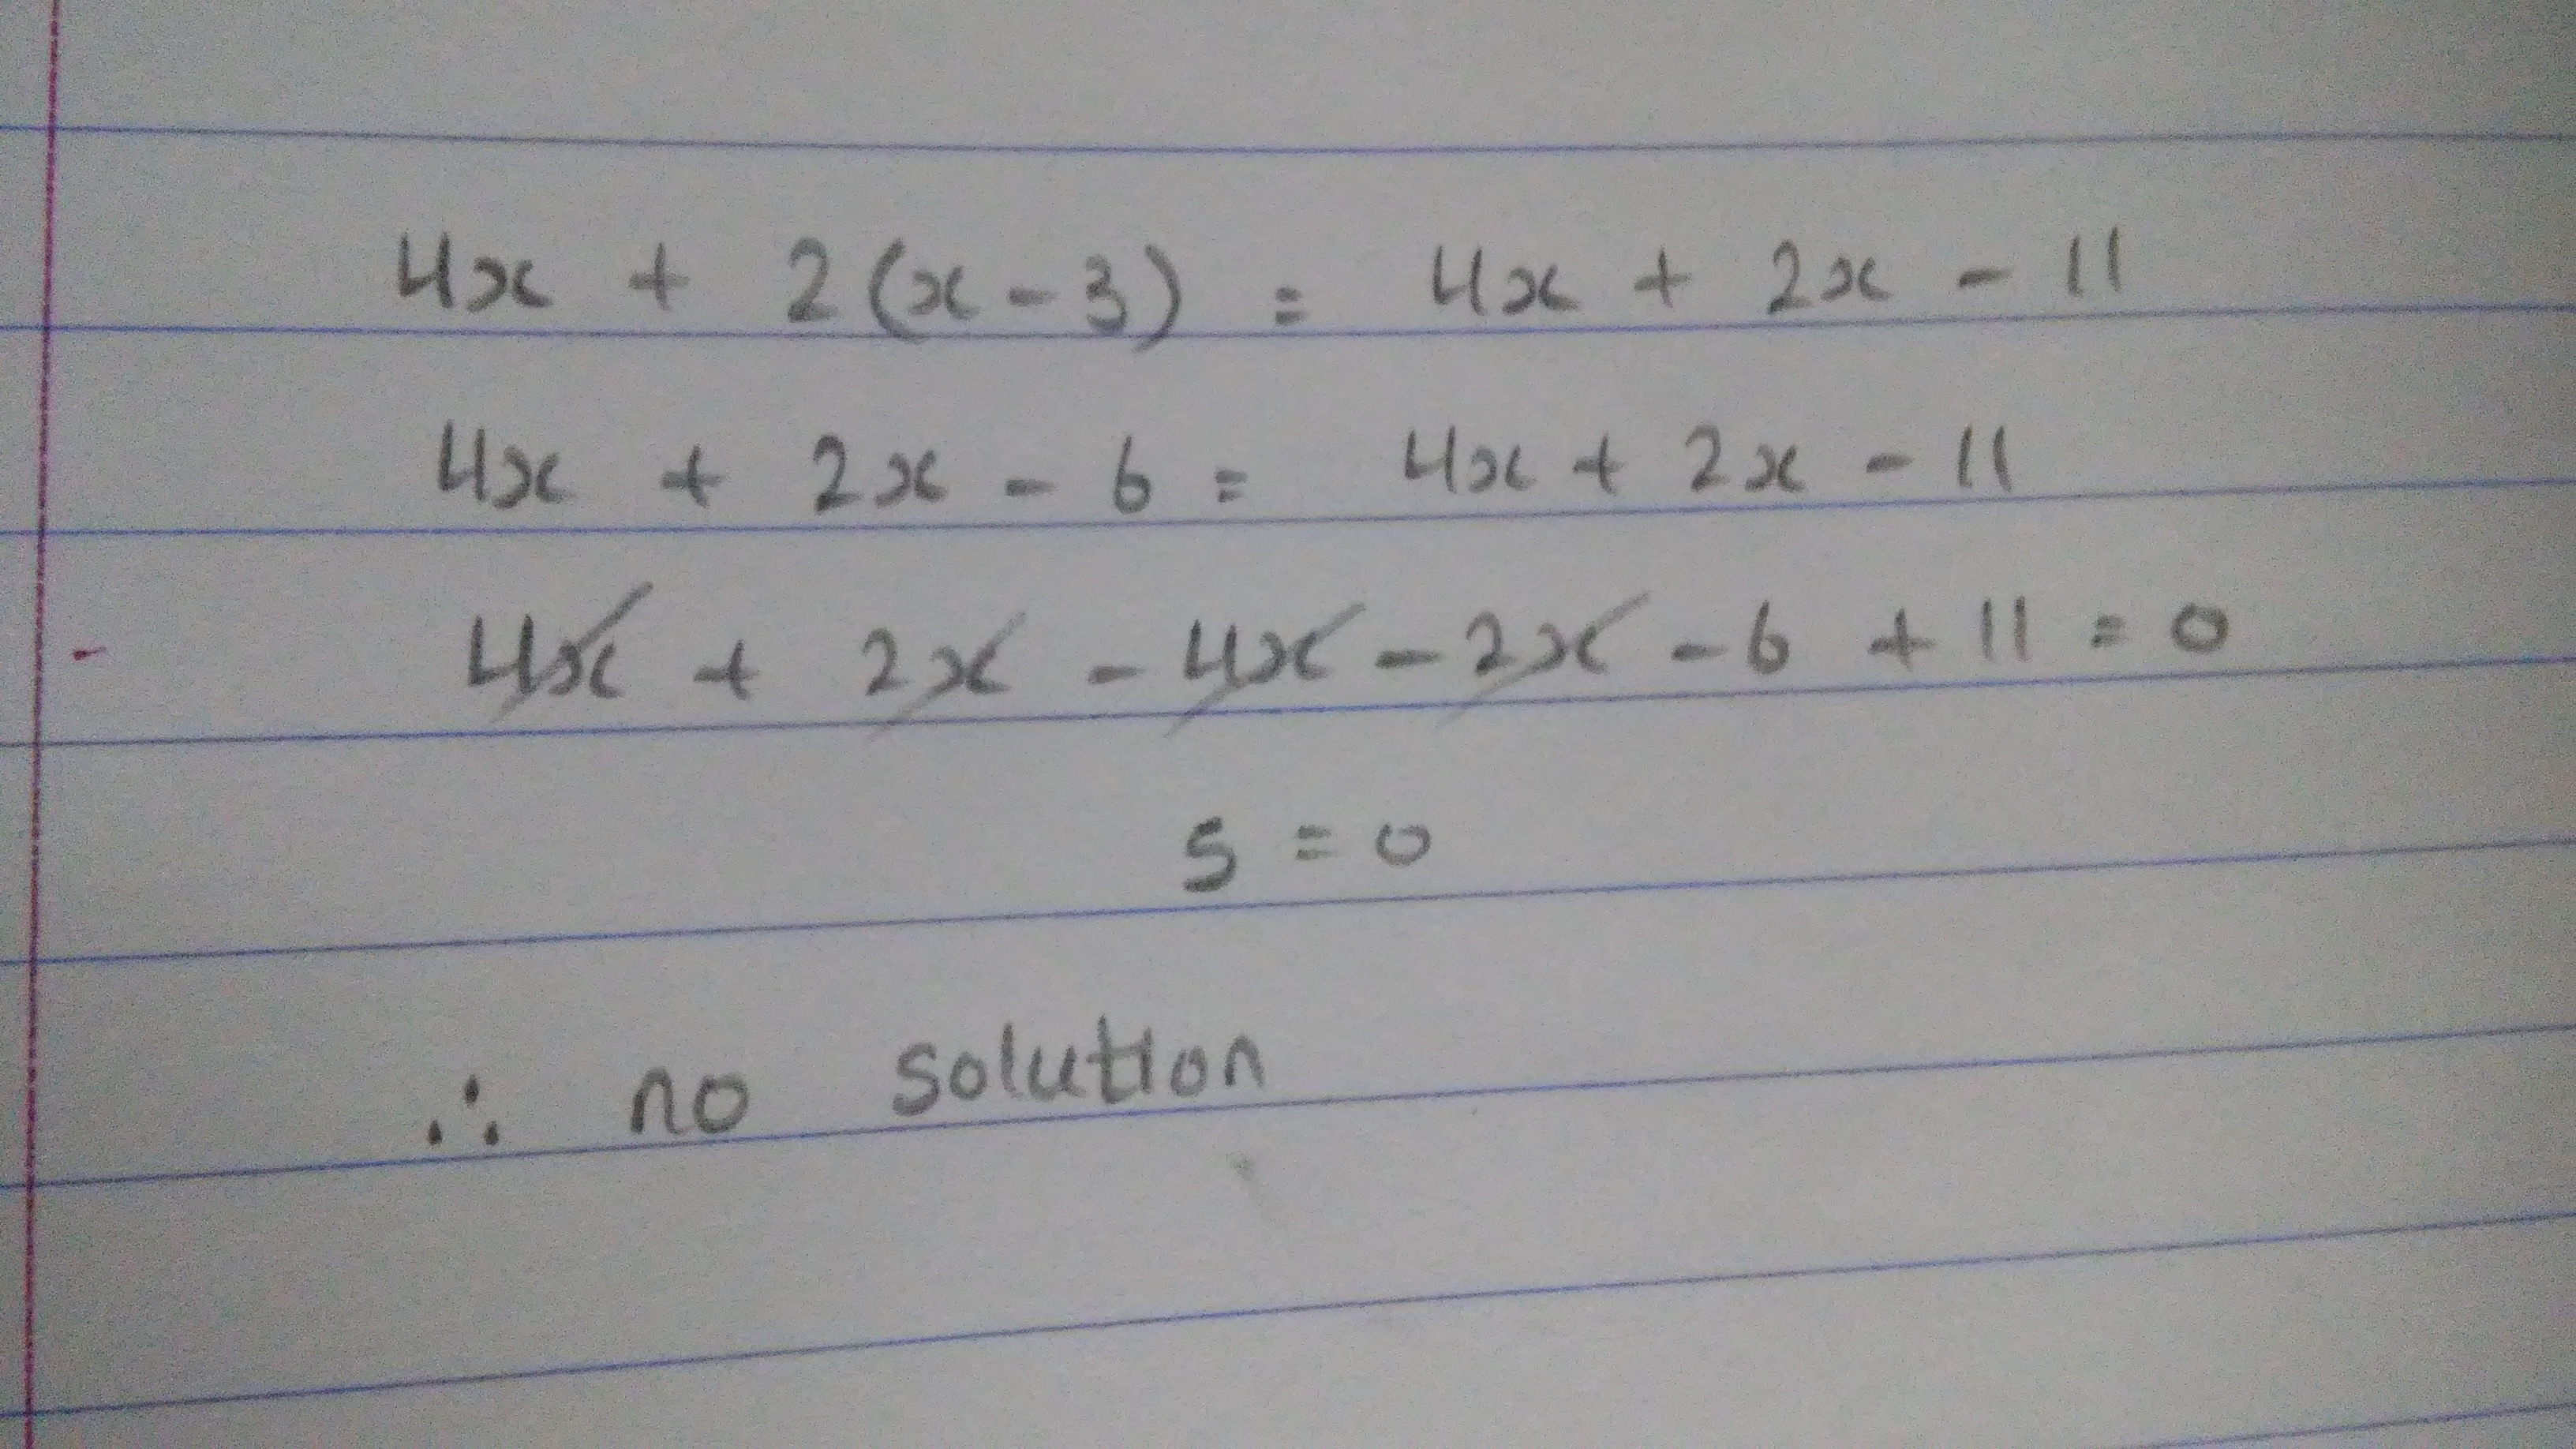 4x + 2(x - 3) = 4x + 2x - 11
4x + 2x - 6 = 4x + 2x - 11
4x + 2x - 4x - 2x - 6 + 11 = 0
5 = 0
∴ no solution